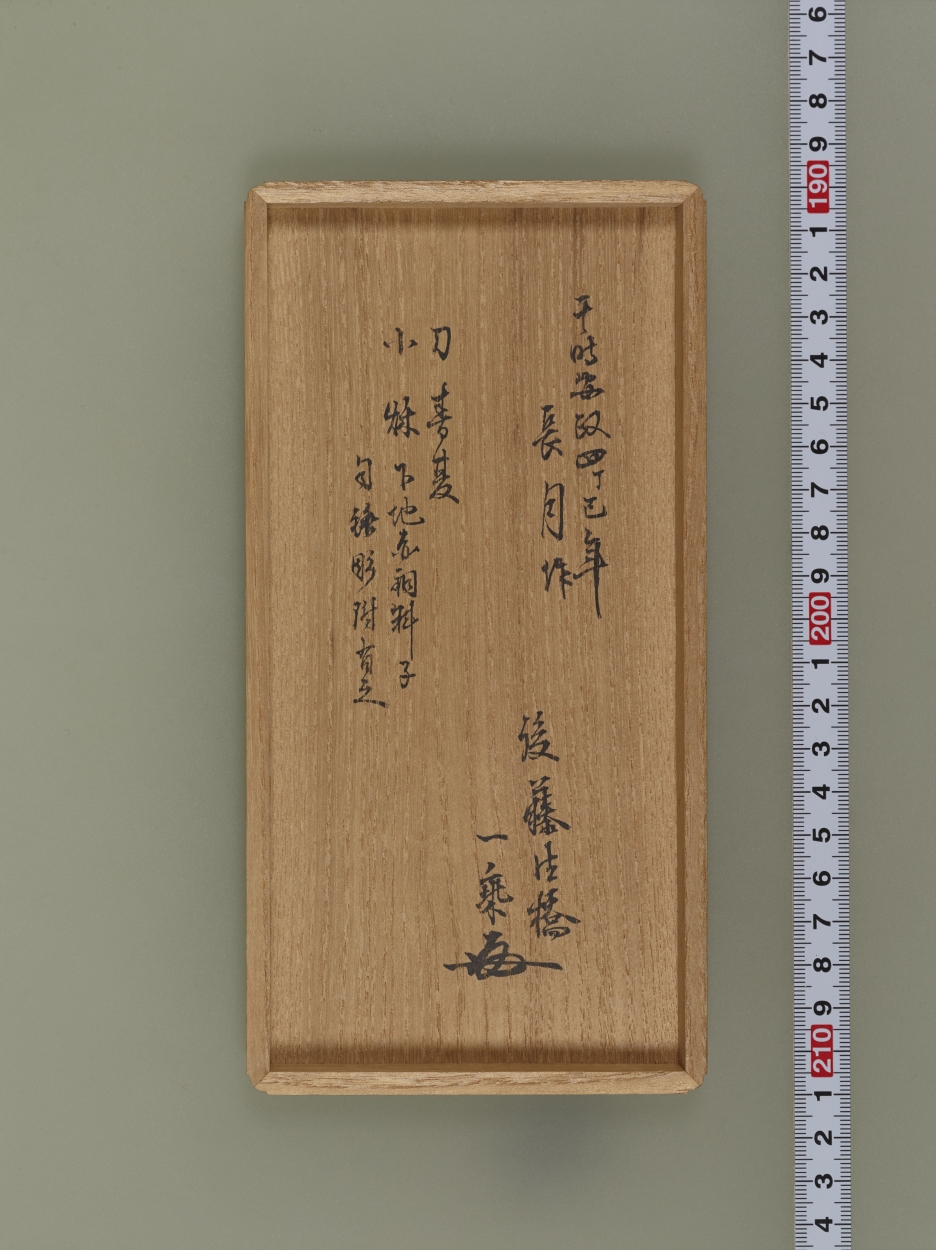 于時安政四丁巳年
長月作
後藤法橋
一乗
刀 春夏
小 下地赤銅料子
彫附有之
6
7
8
9
190
1
2
3
4
5
6
7
8
9
200
1
2
3
4
5
6
7
8
9
210
1
2
3
4